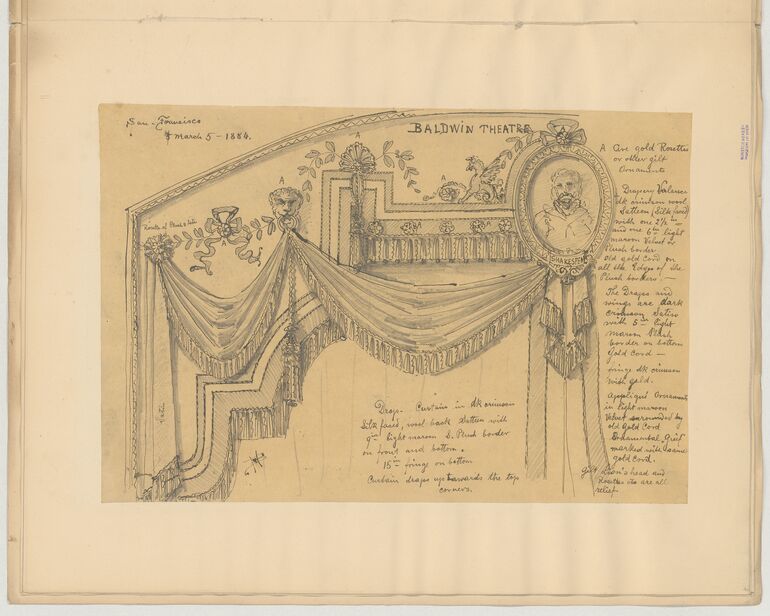 San-Francisco
March 5-1884.
BALDWIN THEATRE
A
A
A
A
A
Rosette of Plush & Satin
SHAKESPEARE
A Are gold Rosettes
or other gilt
Ornaments
Drapery Valance
dk crimson wool
Satteen (Silk faced)
with one 2½ in
and one 6 in light
maroon Velvet or
Plush border
old gold Cord on
all the Edges of the
Plush borders.-
The Drapes and
wings are dark
crimson Satin
with 5 in light
maroon Plush
border on bottom
Gold Cord -
fringe dk crimson
with gold.
Appliqué Ornaments
in light maroon
Velvet surrounded by
old Gold Cord
marked with same
gold cord.
Gilt Lion's head and
Rosettes etc are all
relief.
Drop- Curtain in dk crimson
Silk faced, wool back Satteen with
9 in light maroon S. Plush border
on front and bottom.
15 in fringe on bottom
Curtain drapes up towards the top
corners.